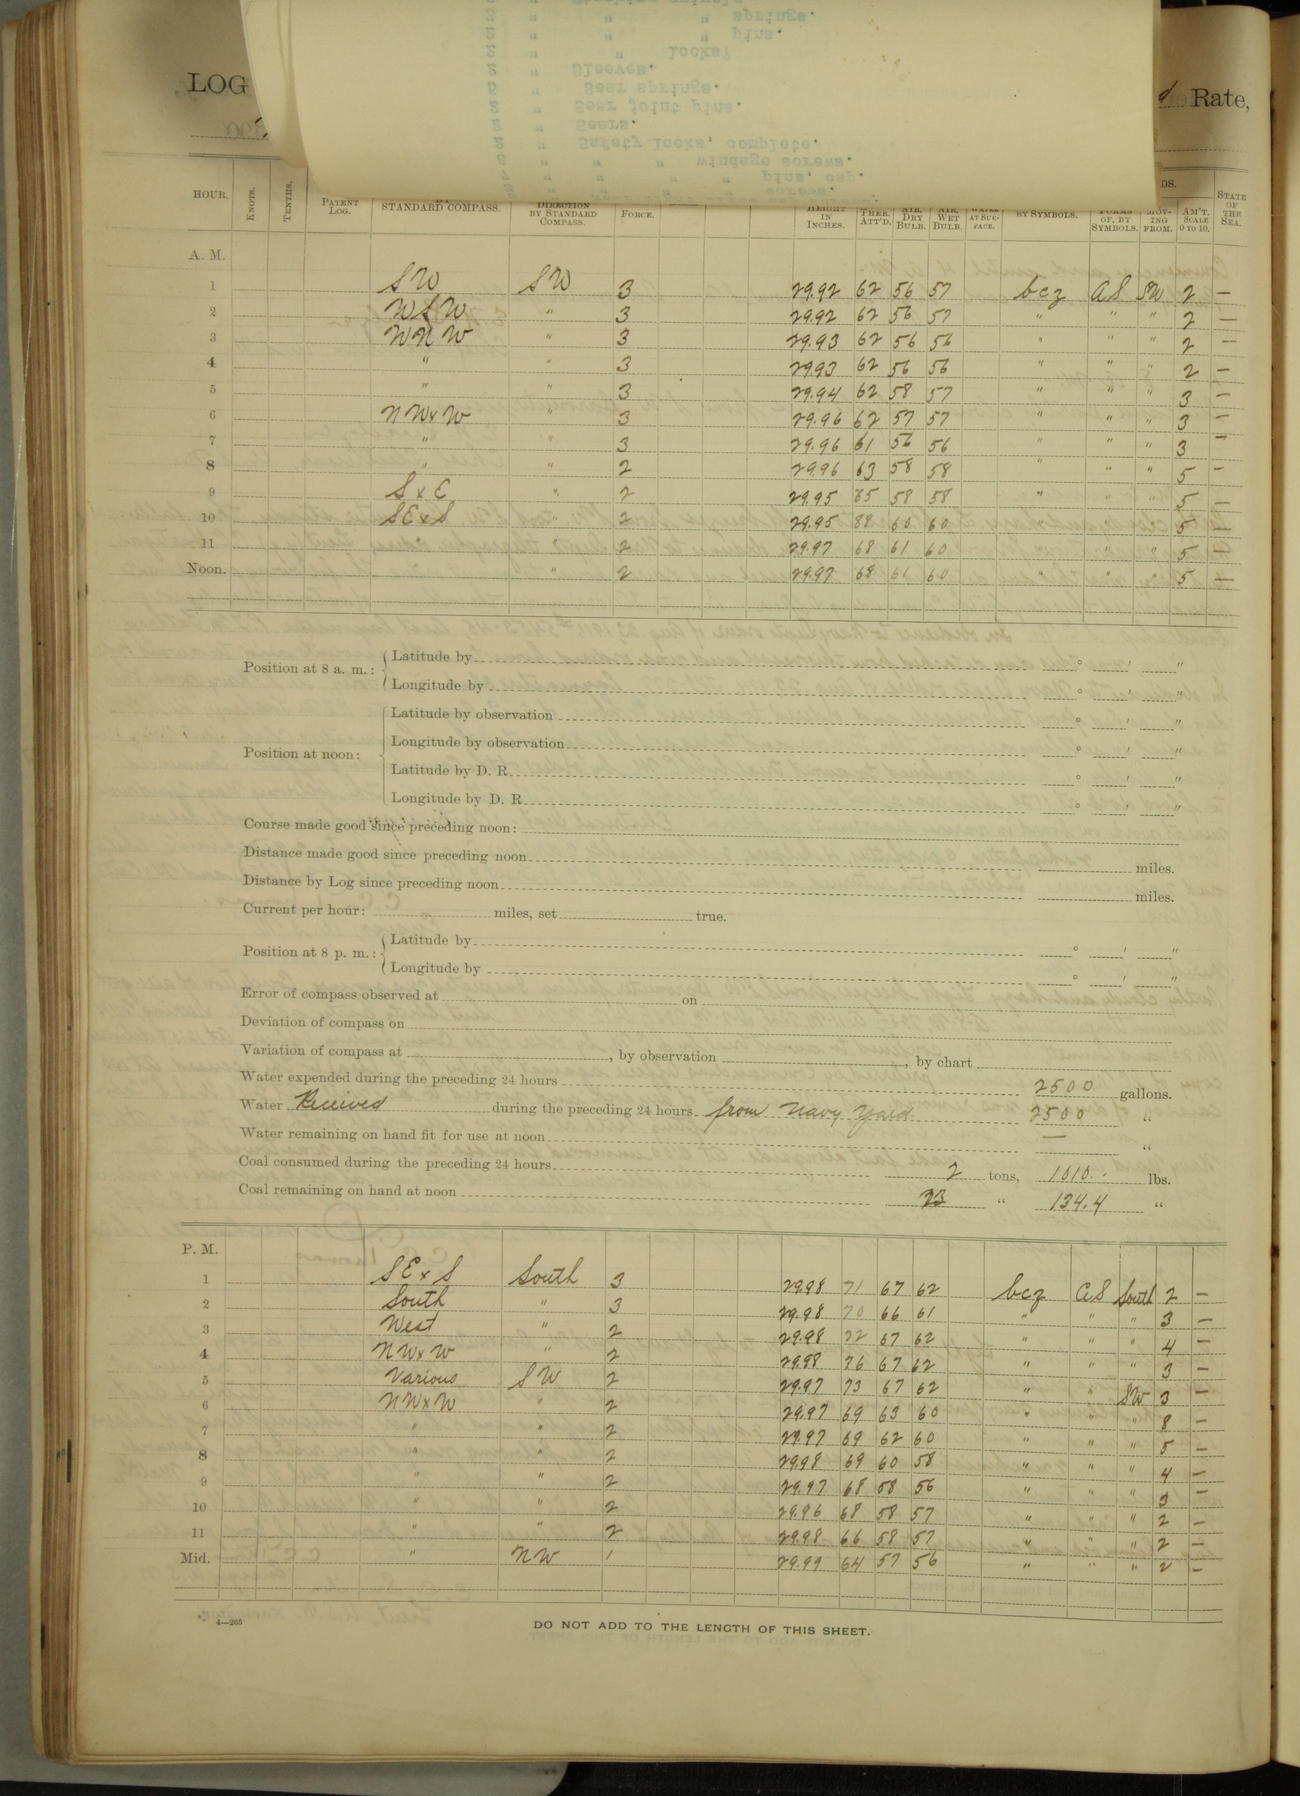 LOG
Rate,
HOUR. KNOTS. TENTHS. PATENT LOG. STANDARD COMPASS. DIRECTION BY STANDARD COMPASS. FORCE. HEIGHT IN INCHES. THER. ATT'D. AIR, DRY BULB. AIR, WET BULB. WATER AT SURFACE. BY SYMBOLS. FORMS OF, BY SYMBOLS. MOVING FROM. AM'T. SCALE 0 TO 10. STATE OF THE SEA.
A. M.
1 SW SW 3 29.92 62 56 57 bcz aS SW 2 —
2 WSW " 3 29.92 62 56 57 " " " 2 —
3 WNW " 3 29.93 62 56 56 " " " 2 —
4 " " 3 29.93 62 56 56 " " " 2 —
5 " " 3 29.94 62 58 57 " " " 3 —
6 NWxW " 3 29.96 62 57 57 " " " 3 —
7 " " 3 29.96 61 56 56 " " " 3 —
8 " " 2 29.96 63 58 58 " " " 5 —
9 SxE " 2 29.95 65 58 58 " " " 5 —
10 SExS " 2 29.95 60 60 " " " 5 —
11 " " 2 29.97 68 61 60 " " " 5 —
Noon. " " 2 29.97 68 61 60 " " " 5 —
Position at 8 a. m.: Latitude by ° ' "
Longitude by ° ' "
Position at noon: Latitude by observation ° ' "
Longitude by observation ° ' "
Latitude by D. R. ° ' "
Longitude by D. R. ° ' "
Course made good since preceding noon:
Distance made good since preceding noon miles.
Distance by Log since preceding noon miles.
Current per hour: miles, set true.
Position at 8 p. m.: Latitude by ° ' "
Longitude by ° ' "
Error of compass observed at on
Deviation of compass on
Variation of compass at , by observation , by chart
Water expended during the preceding 24 hours 2500 gallons.
Water Received during the preceding 24 hours from Navy Yard 2500 "
Water remaining on hand fit for use at noon — "
Coal consumed during the preceding 24 hours 2 tons, 1010. lbs.
Coal remaining on hand at noon 23 " 134.4 "
P. M.
1 SExS South 3 29.98 71 67 62 bcz aS South 2 —
2 South " 3 29.98 70 66 61 " " " 3 —
3 West " 2 29.98 72 67 62 " " " 4 —
4 NWxW " 2 29.98 76 67 62 " " " 3 —
5 Various SW 2 29.97 73 67 62 " " SW 3 —
6 NWxW " 2 29.97 69 63 60 " " " 8 —
7 " " 2 29.97 69 62 60 " " " 5 —
8 " " 2 29.98 69 60 58 " " " 4 —
9 " " 2 29.97 68 58 56 " " " 3 —
10 " " 2 29.96 68 58 57 " " " 2 —
11 " " 2 29.98 66 58 57 " " " 2 —
Mid. " NW 1 29.99 64 57 56 " " " 2 —
4—265
DO NOT ADD TO THE LENGTH OF THIS SHEET.